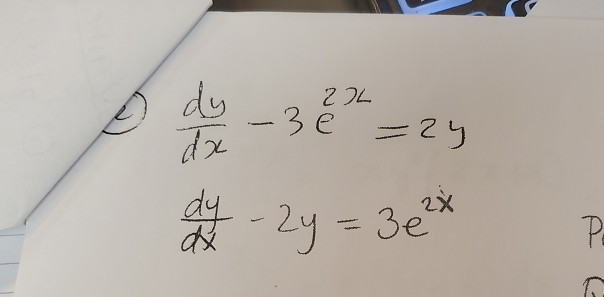 ② dy/dx - 3e^{2x} = 2y
dy/dx - 2y = 3e^{2x}